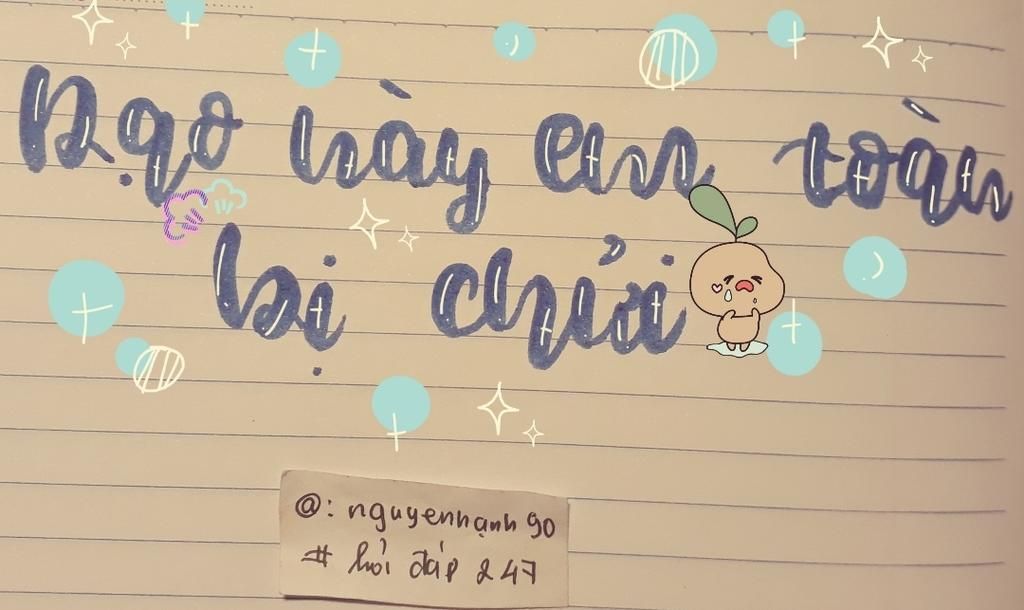 Dạo này em toàn
bị chửi
@: nguyenhạnh90
# hỏi đáp 247